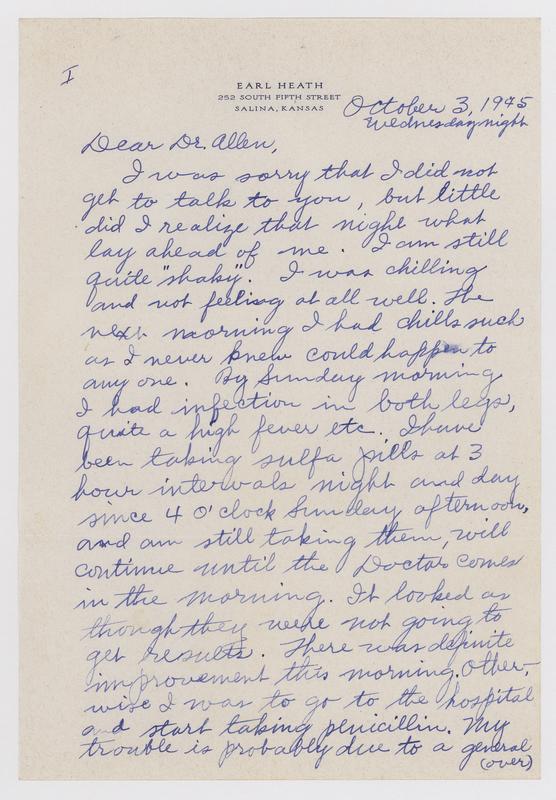 I
EARL HEATH
252 SOUTH FIFTH STREET
SALINA, KANSAS
October 3, 1945
Wednesday night
Dear Dr. Allen,
I was sorry that I did not
get to talk to you, but little
did I realize that night what
lay ahead of me. I am still
quite "shaky". I was chilling
and not feeling at all well. The
next morning I had chills such
as I never knew could happen to
any one. By Sunday morning
I had infection in both legs,
quite a high fever etc. I have
been taking sulfa pills at 3
hour intervals night and day
since 4 O'clock Sunday afternoon,
and am still taking them, will
continue until the Doctor comes
in the morning. It looked as
though they were not going to
get results. There was definite
improvement this morning. Other-
wise I was to go to the hospital
and start taking penicillin. My
trouble is probably due to a general
(over)